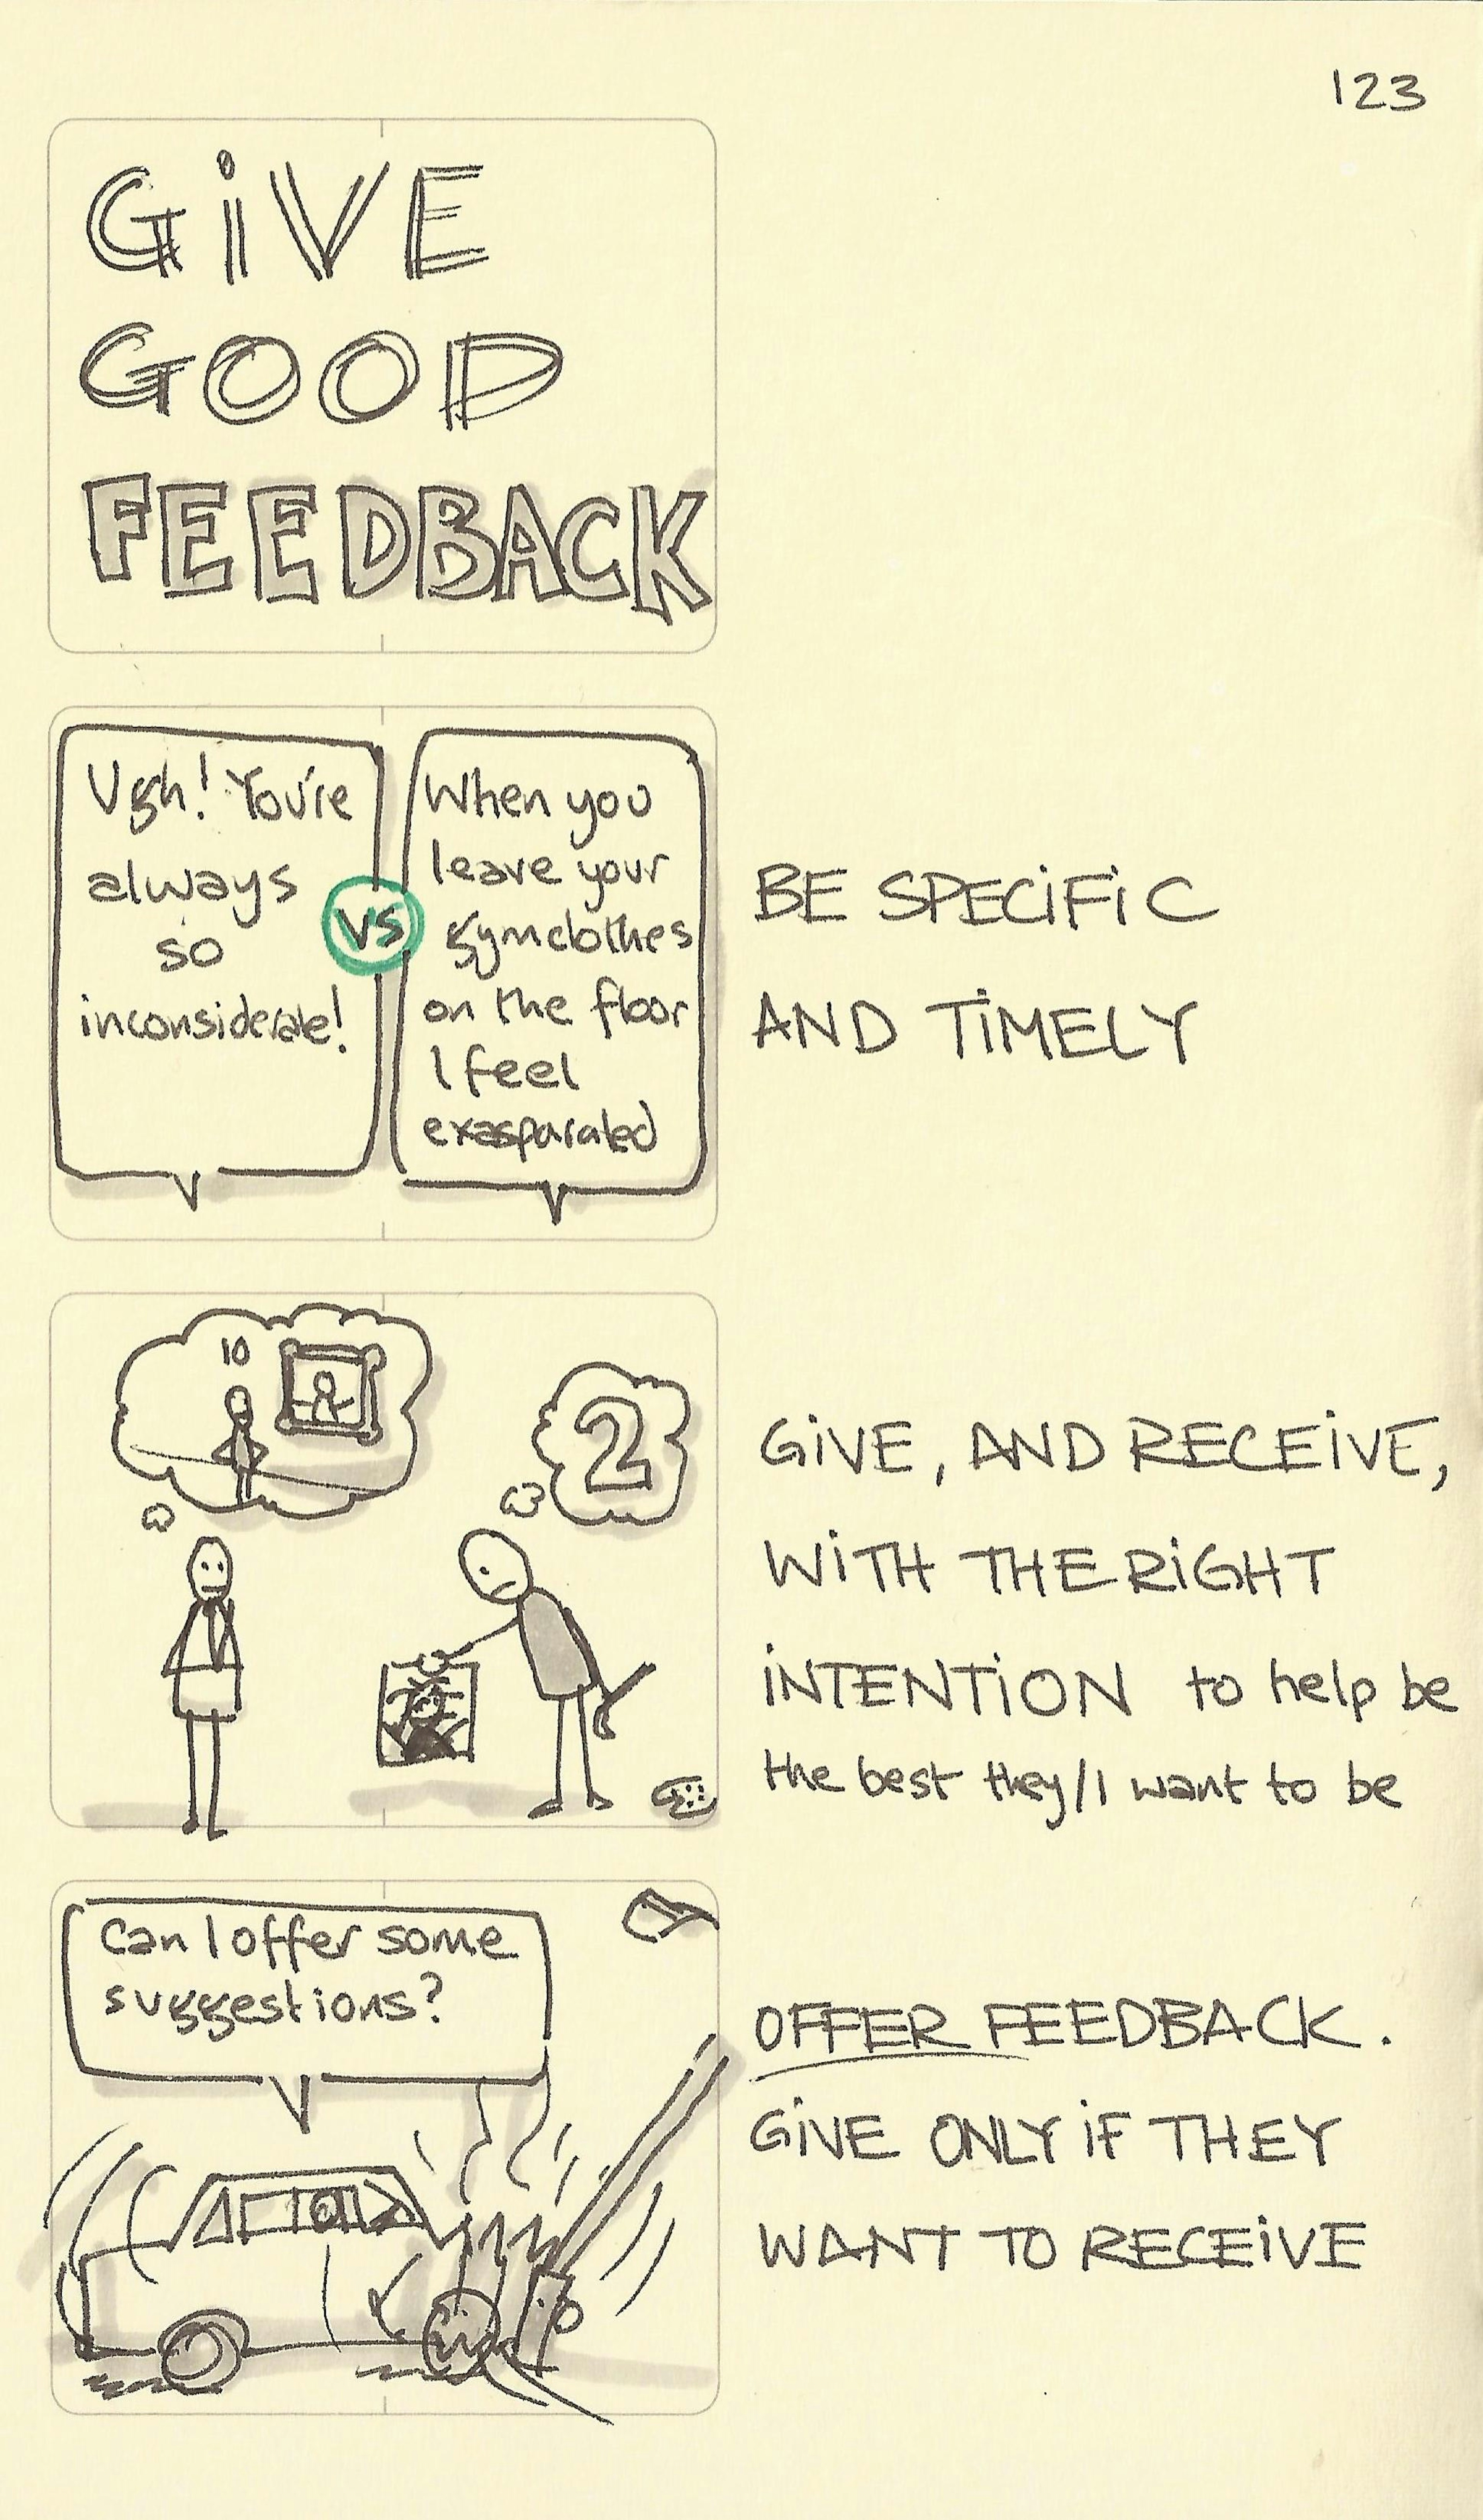 123
GiVE
GOOD
FEEDBACK
Ugh! You're
always
so
inconsiderate!
VS
When you
leave your
gymclothes
on the floor
I feel
exasparated
BE SPECiFiC
AND TiMELY
10
2
GiVE, AND RECEiVE,
WiTH THE RiGHT
iNTENTiON to help be
the best they/I want to be
Can I offer some
suggestions?
OFFER FEEDBACK.
GiVE ONLY iF THEY
WANT TO RECEiVE